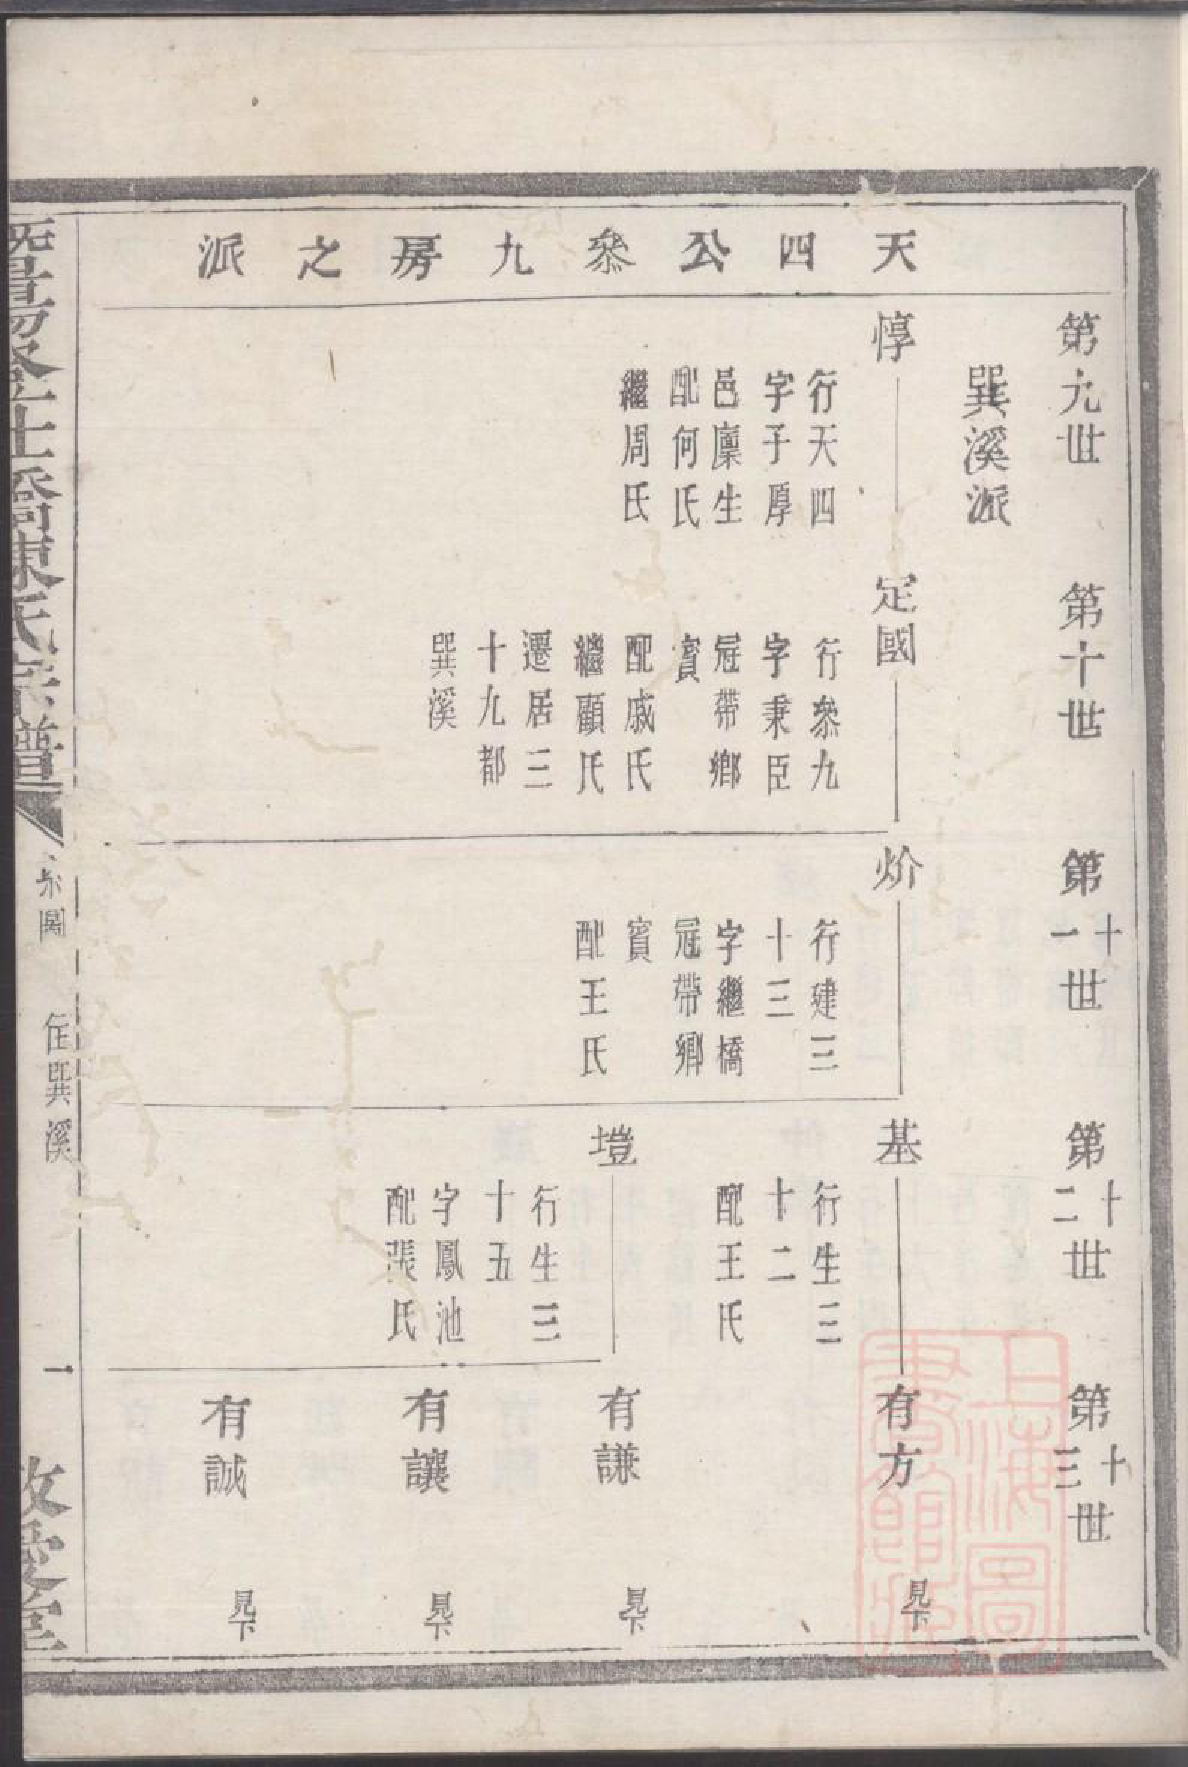 天四公叅九房之派
第九世
巽溪派
惇
行天四
字子厚
邑廩生
配何氏
繼周氏
第十世
定國
行叅九
字秉臣
冠帶鄉
賓
配戚氏
繼顧氏
遷居三
十九都
巽溪
第十一世
炌
行建三
十三
字繼橋
冠帶鄉
賓
配王氏
第十二世
基
行生三
十二
配王氏
塏
行生三
十五
字鳳池
配張氏
第十三世
有方
見下
有謙
見下
有讓
見下
有誠
見下
陳氏宗譜
系圖
住巽溪
一
敦愛堂
上海圖
書館藏